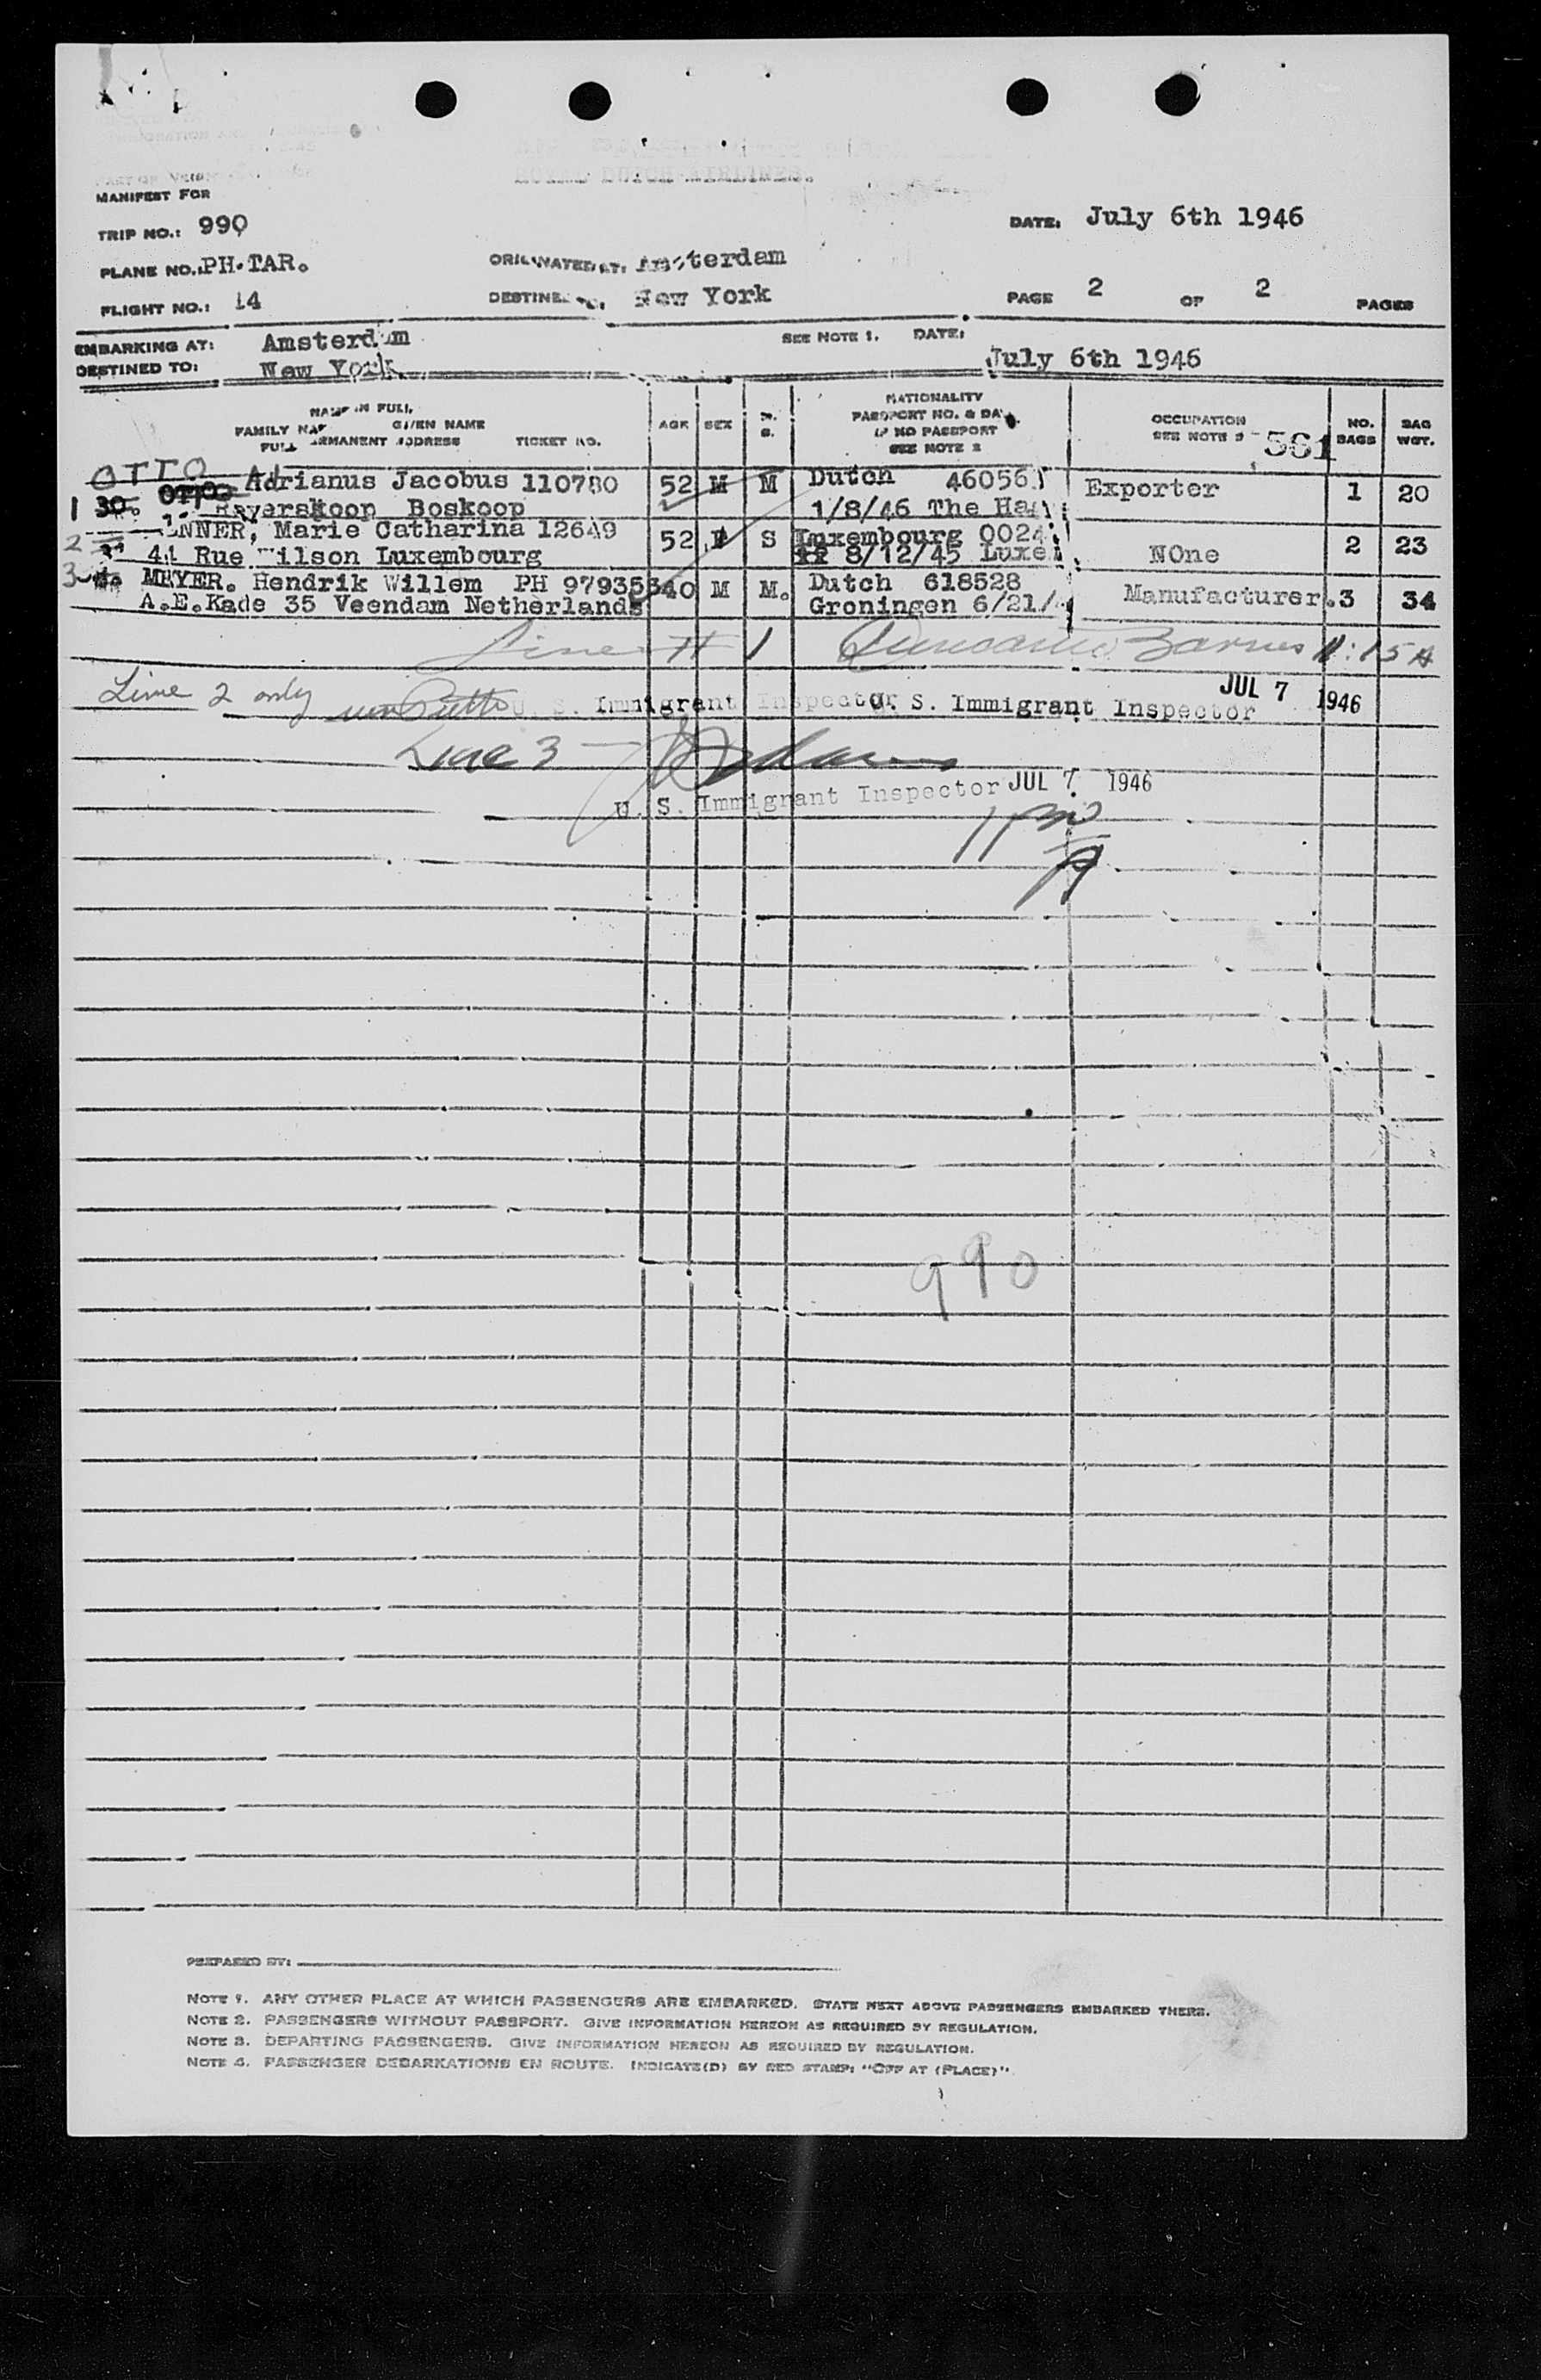 ROYAL DUTCH AIRLINES.
MANIFEST FOR
TRIP NO.: 990
DATE: July 6th 1946
PLANE NO.: PH-TAR.
ORIGINATED AT: Amsterdam
FLIGHT NO.: 14
DESTINED TO: New York
PAGE 2 OF 2 PAGES
EMBARKING AT: Amsterdam
SEE NOTE 1. DATE: July 6th 1946
DESTINED TO: New York
NAME IN FULL
FAMILY NAME GIVEN NAME
FULL PERMANENT ADDRESS TICKET NO.
AGE SEX M. S.
NATIONALITY
PASSPORT NO. & DATE
IF NO PASSPORT
SEE NOTE 2
OCCUPATION
SEE NOTE 3
561
NO. BAGS
BAG WGT.
OTTO
1 30. OTTO Adrianus Jacobus 110780 52 M M Dutch 46056 Exporter 1 20
Boskoop 1/8/46 The Ha
2 ENNER, Marie Catharina 12649 52 F S Luxembourg 0024 NOne 2 23
41 Rue Wilson Luxembourg 8/12/45 Luxe
3 MEYER. Hendrik Willem PH 979356 40 M M. Dutch 618528 Manufacturer. 3 34
A.E.Kade 35 Veendam Netherlands Groningen 6/21/
Line # 1 Barnes 11:15 A
Line 2 only
U. S. Immigrant Inspector U. S. Immigrant Inspector JUL 7 1946
Line 3 -
U. S. Immigrant Inspector JUL 7 1946
990
PREPARED BY:
NOTE 1. ANY OTHER PLACE AT WHICH PASSENGERS ARE EMBARKED. STATE NEXT ABOVE PASSENGERS EMBARKED THERE.
NOTE 2. PASSENGERS WITHOUT PASSPORT. GIVE INFORMATION HEREON AS REQUIRED BY REGULATION.
NOTE 3. DEPARTING PASSENGERS. GIVE INFORMATION HEREON AS REQUIRED BY REGULATION.
NOTE 4. PASSENGER DEBARKATIONS EN ROUTE. INDICATE(D) BY RED STAMP: "OFF AT (PLACE)"